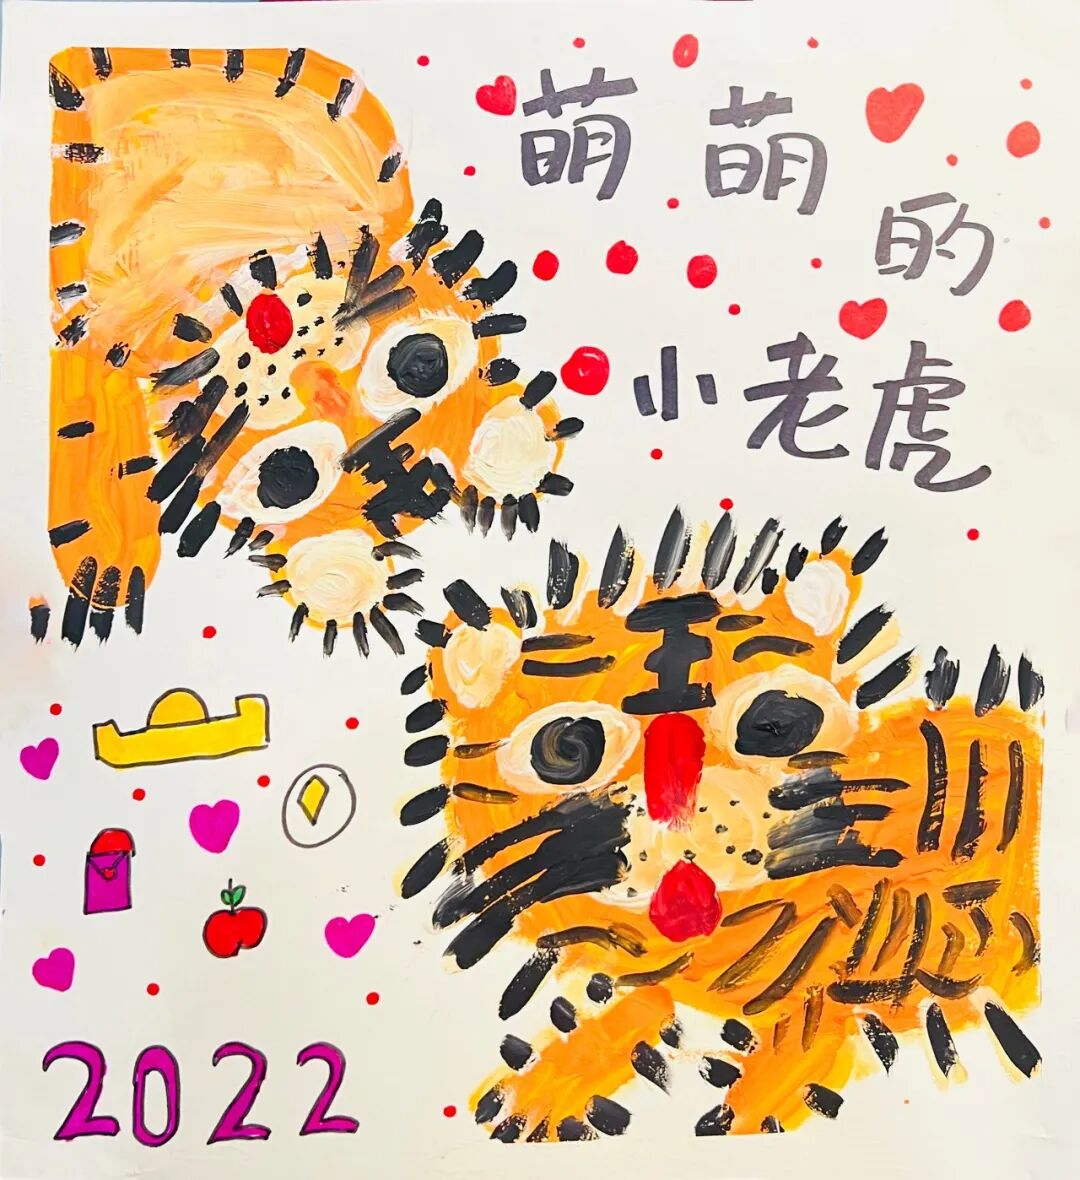 萌萌的
小老虎
2022